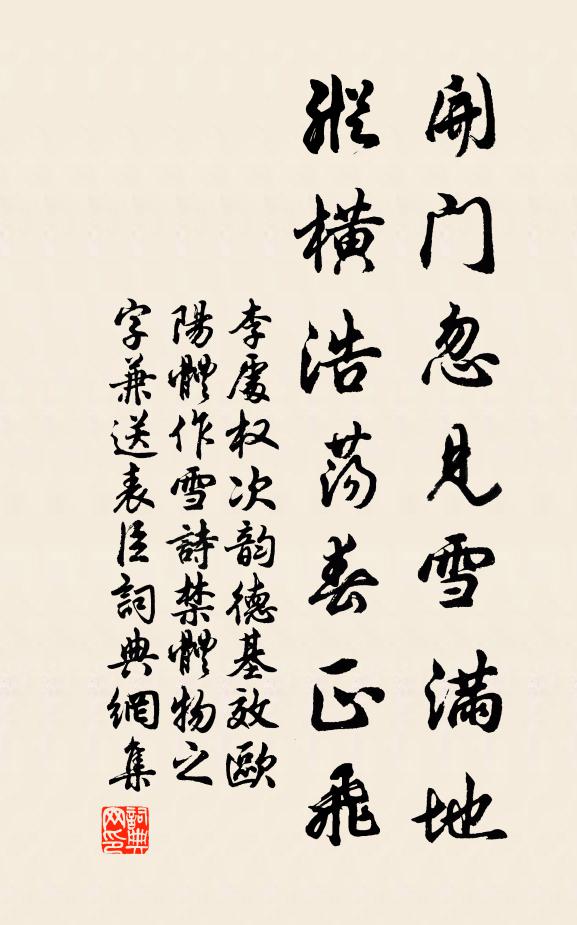 開門忽見雪滿地
縱橫浩蕩春正飛
李處权次韵德基效歐
陽體作雪詩禁體物之
字兼送表臣詞典網集
詞典網印